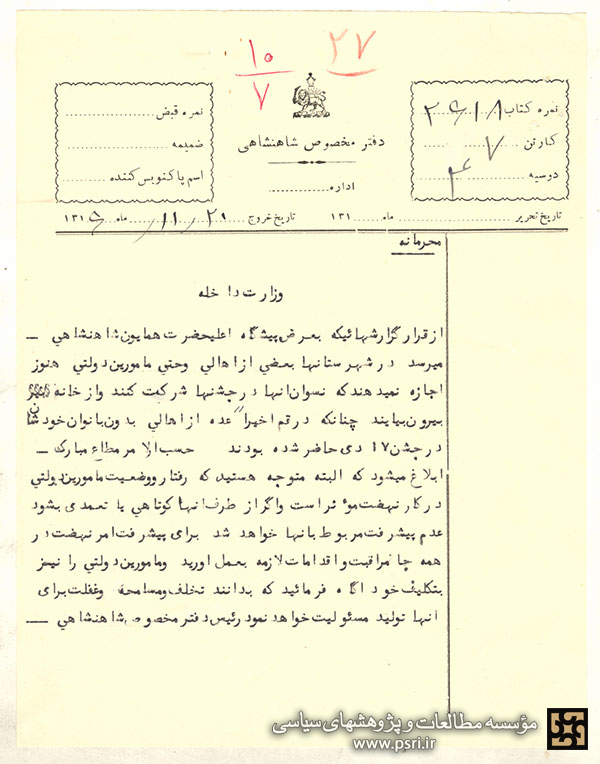 ۲۷
۱۰
۷
نمره کتاب
کارتن ۷
دوسیه
دفتر مخصوص شاهنشاهی
اداره
نمره قبض
ضمیمه
اسم پاکنویس کننده
تاریخ تحریر ماه ۱۳۱
تاریخ خروج ۲۰ ۱۱ ماه ۱۳۱۶
محرمانه
وزارت داخله
از قرار گزارشهائیکه بعرض پیشگاه اعلیحضرت همایون شاهنشاهی ــ
میرسد در شهرستانها بعضی از اهالی وحتی مامورین دولتی هنوز
اجازه نمیدهند که نسوان آنها در جشنها شرکت کنند و از خانه
بیرون بیایند چنانکه در قم اخیراً عده از اهالی بدون بانوان خودشان
در جشن ۱۷ دی حاضر شده بودند حسب الامر مطاع مبارک ــ
ابلاغ میشود که البته متوجه هستید که رفتار و وضعیت مامورین دولتی
در کار نهضت مؤثر است واگر از طرف آنها کوتاهی یا تعمدی بشود
عدم پیشرفت مربوط بآنها خواهد شد برای پیشرفت امر نهضت در
همه جا مراقبت و اقدامات لازمه بعمل اورید ومامورین دولتی را نیز
بتکلیف خود آگاه فرمائید که بدانند تخلف ومسامحه وغفلت برای
آنها تولید مسئولیت خواهد نمود رئیس دفتر مخصوص شاهنشاهی ــ
مؤسسه مطالعات و پژوهشهای سیاسی
www.psri.ir